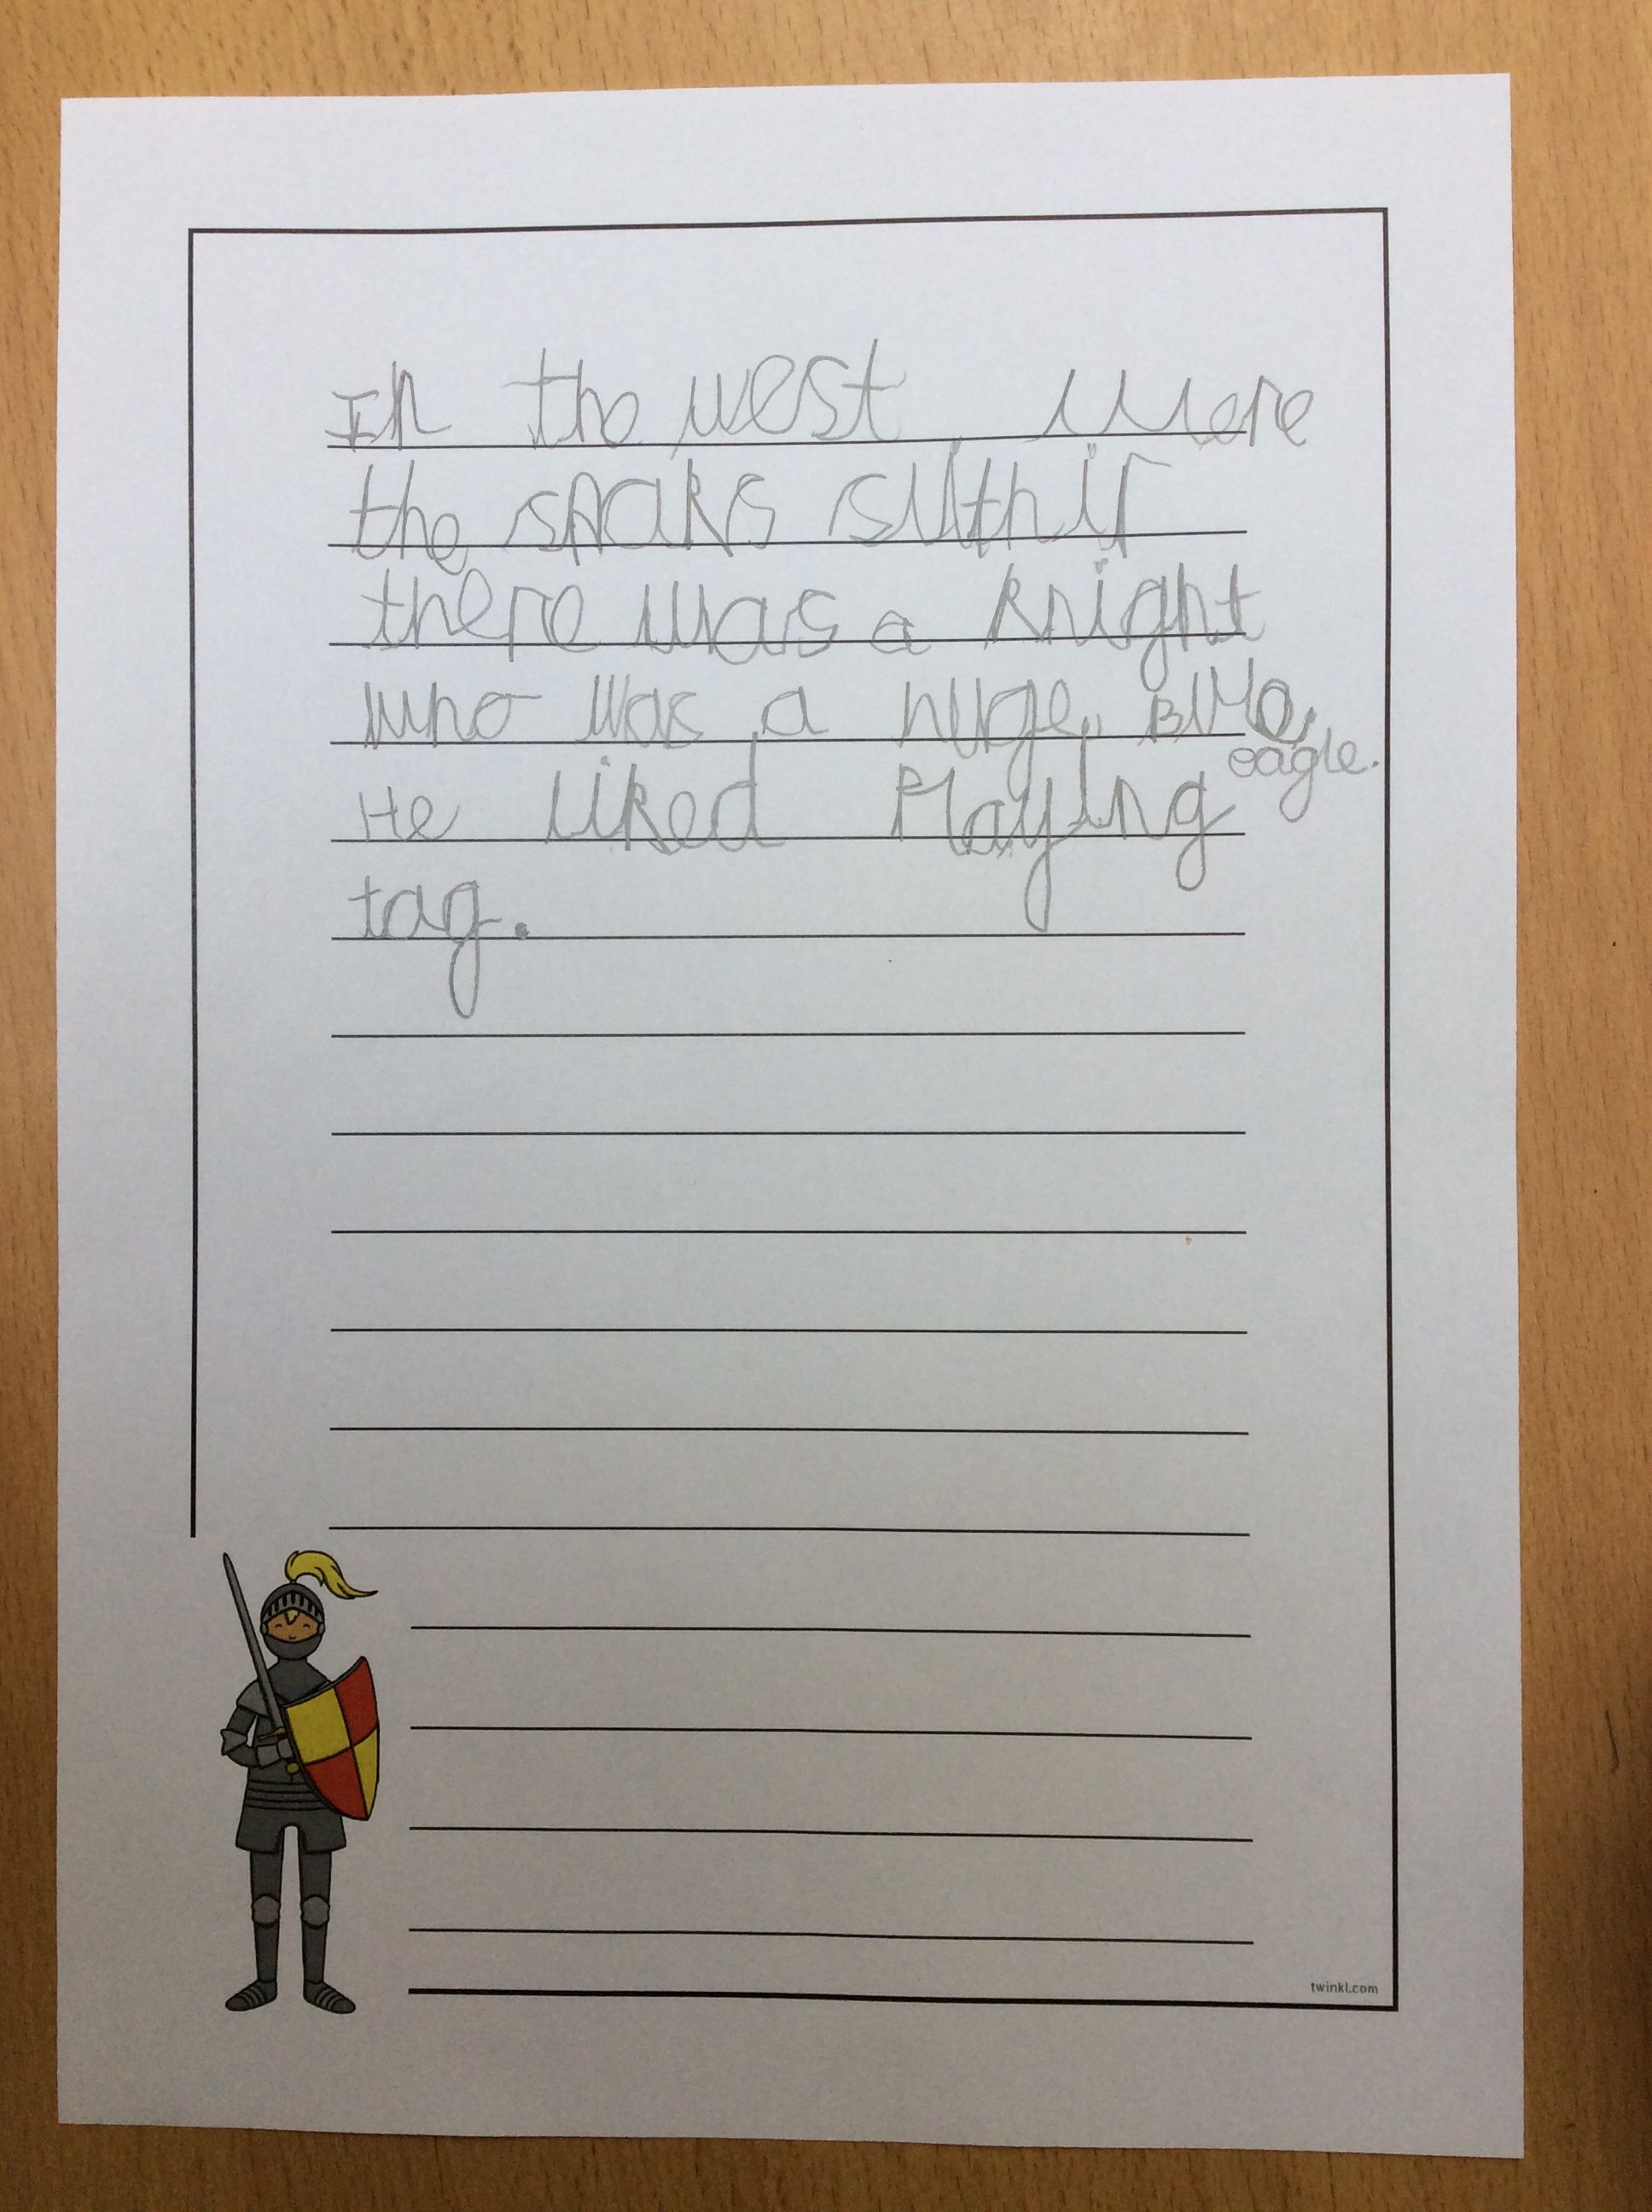 In the west were
the snaks slithir
there was a knight
who was a huge,
eagle.
He liked Playing
tag.
twinkl.com